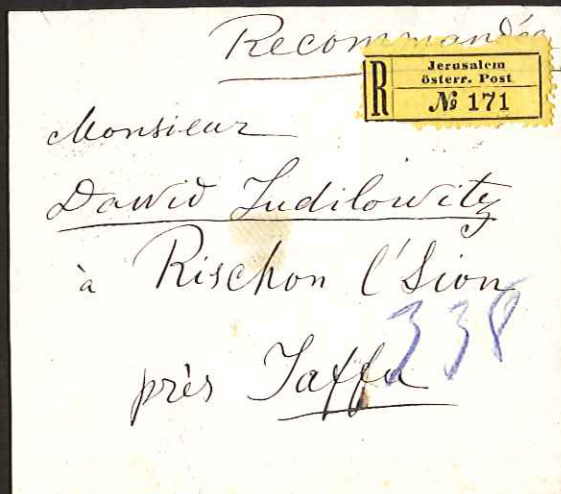 Recommandée
R
Jerusalem
österr. Post
№ 171
Monsieur
Dawid Judilowitz
à Rischon l'Sion
338
près Jaffa